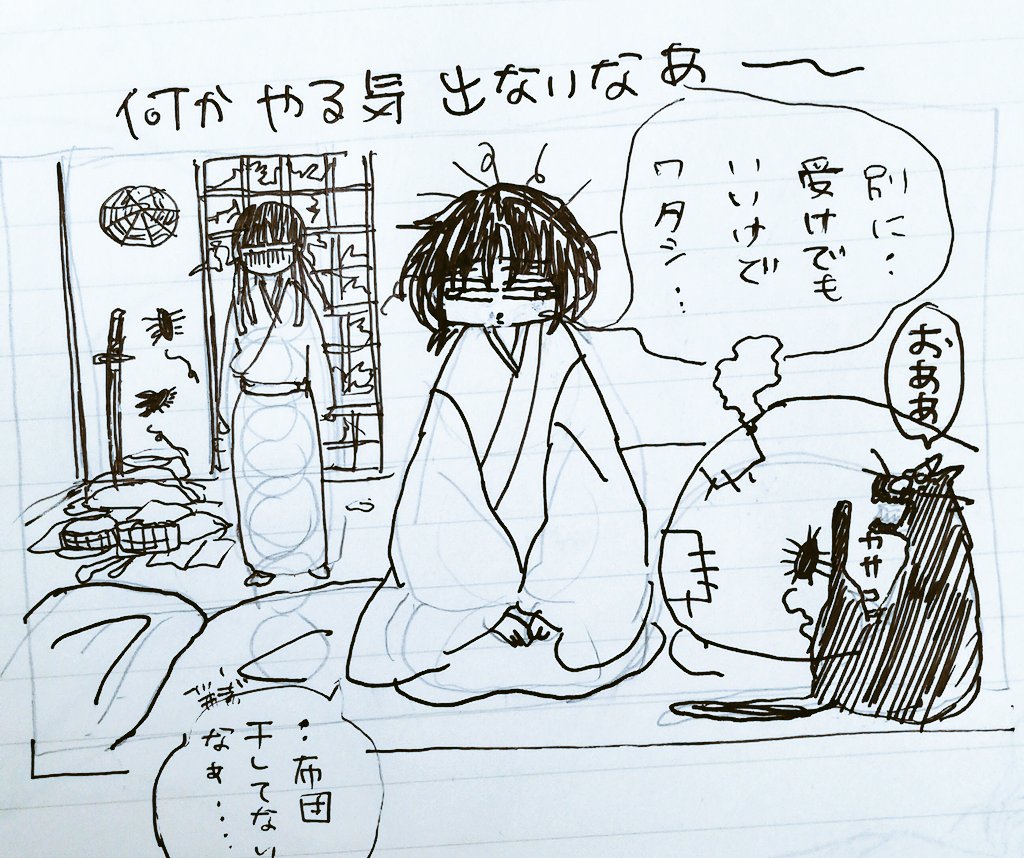 何かやる気出ないなぁ〜
別に・
受けでも
いいけで
ワタシ・・
おああ
カサコソ
・・布団
干してない
なぁ・・・・